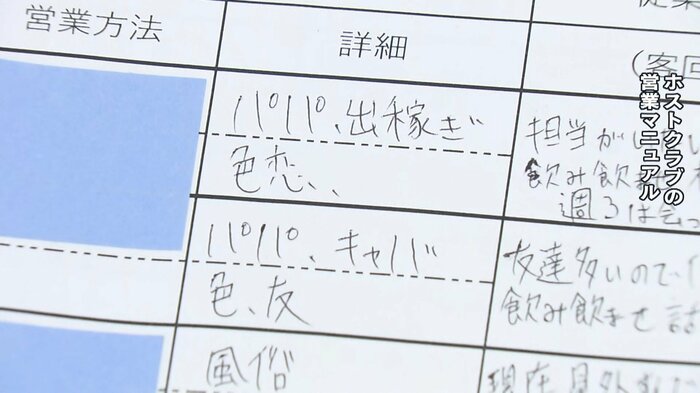 ホストクラブの
営業マニュアル
営業方法
詳細
(客
パパ、出稼ぎ
色恋、、
担当がい
飲み飲
週3は会っ
パパ、キャバ
色、友
友達多いので、
飲み飲ませ
風俗
現在